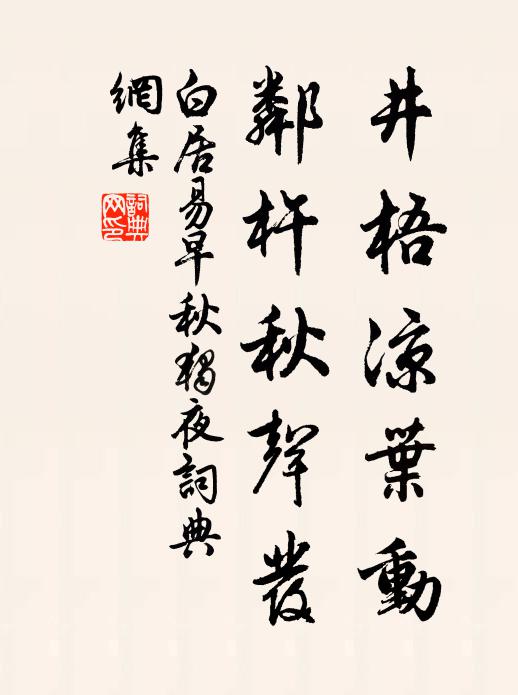 井梧涼葉動
鄰杵秋聲發
白居易早秋獨夜詞典
網集
詞典
网印